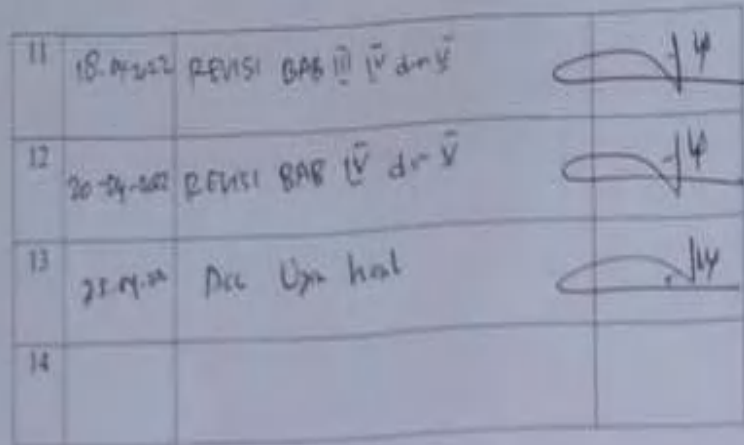 11 18-04-2022 REVISI BAB III IV dan V
12 20-04-2022 REVISI BAB IV dan V
13 Acc Ujian hasil
14